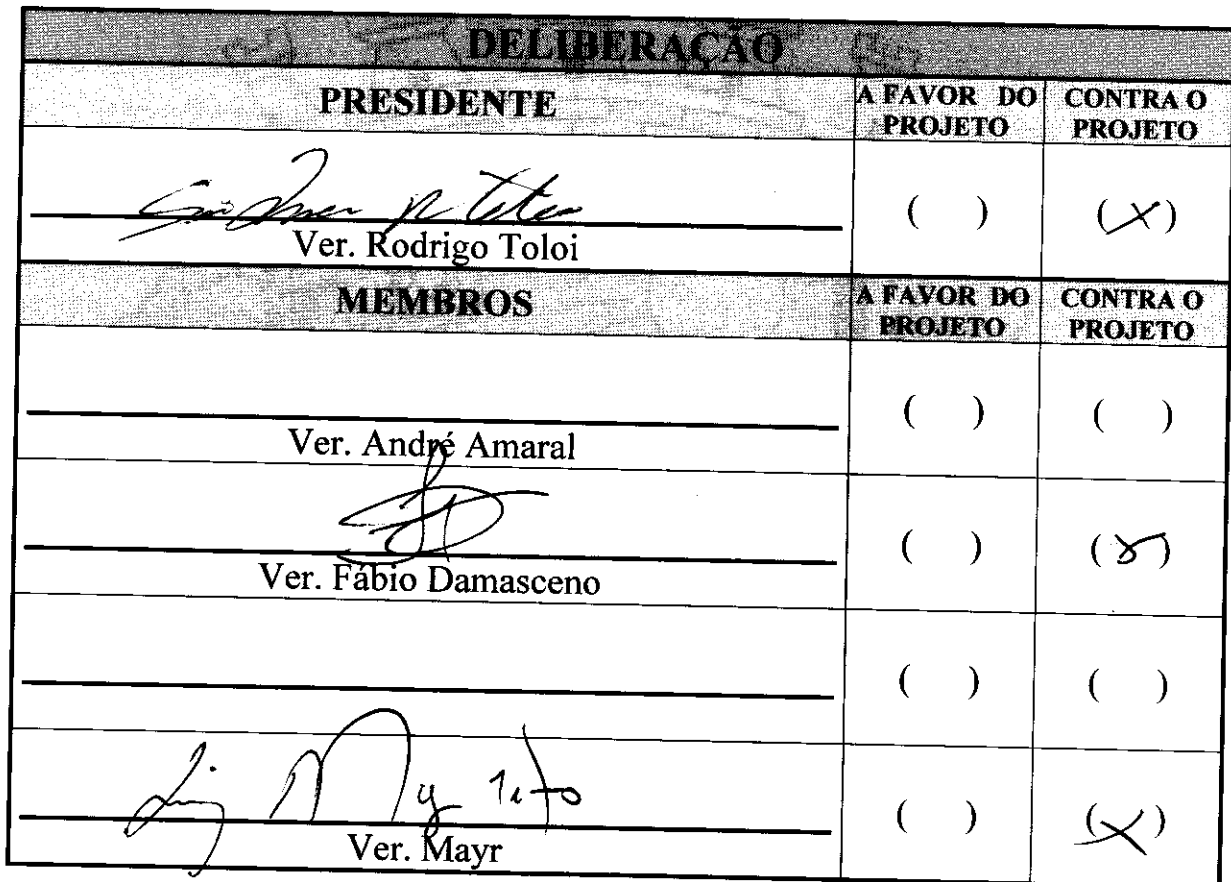 DELIBERAÇÃO
PRESIDENTE
A FAVOR DO PROJETO
CONTRA O PROJETO
( )
(X)
Ver. Rodrigo Toloi
MEMBROS
A FAVOR DO PROJETO
CONTRA O PROJETO
( )
( )
Ver. André Amaral
( )
(X)
Ver. Fábio Damasceno
( )
( )
( )
(X)
Ver. Mayr